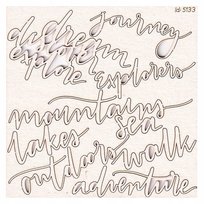 id: 5133
journey
explore
explorers
mountains
sea
lakes
walk
outdoors
adventure